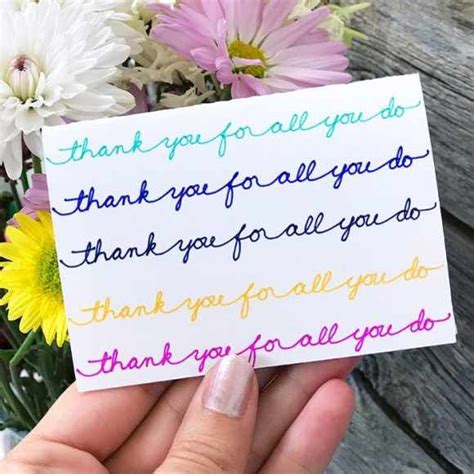 thank you for all you do
thank you for all you do
thank you for all you do
thank you for all you do
thank you for all you do